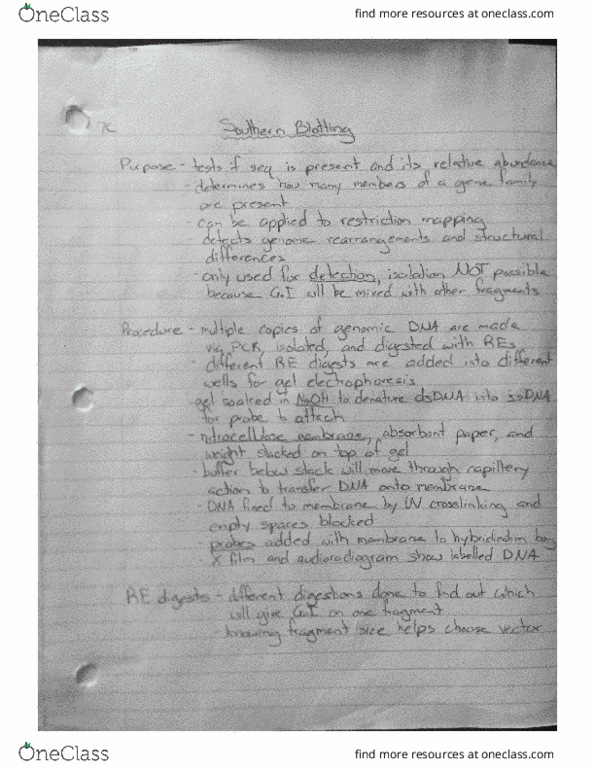 OneClass
find more resources at oneclass.com
Southern Blotting
Purpose - tests if seq is present and its relative abundance
- determines how many members of a gene family
are present
- can be applied to restriction mapping
- detects genome rearrangements and structural
differences
- only used for detection, isolation NOT possible
because G.I will be mixed with other fragments
Procedure - multiple copies of genomic DNA are made
via PCR, isolated, and digested with REs
- different RE digests are added into different
wells for gel electrophoresis
- gel soaked in NaOH to denature dsDNA into ssDNA
for probe to attach
- nitrocellulose membrane, absorbant paper, and
weight stacked on top of gel
- buffer below stack will move through capillary
action to transfer DNA onto membrane
- DNA fixed to membrane by UV crosslinking and
empty spaces blocked
- probes added with membrane to
X film and audioradiogram show labelled DNA
RE digests - different digestions done to find out which
will give G.I on one fragment
- knowing fragment size helps choose vector
OneClass
find more resources at oneclass.com